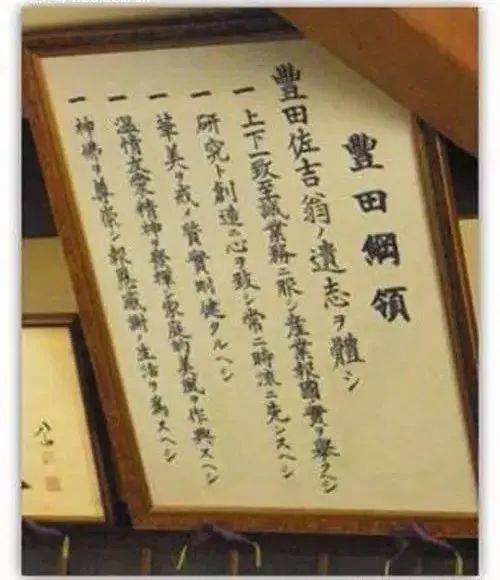 豐田綱領
豐田佐吉翁ノ遺志ヲ體シ
一 上下一致至誠業務ニ服シ産業報國ノ實ヲ擧クヘシ
一 研究ト創造ニ心ヲ致シ常ニ時流ニ先ンスヘシ
一 華美ヲ戒メ質實剛健タルヘシ
一 溫情友愛ノ精神ヲ發揮シ家庭的美風ヲ作興スヘシ
一 神佛ヲ尊崇シ報恩感謝ノ生活ヲ爲スヘシ